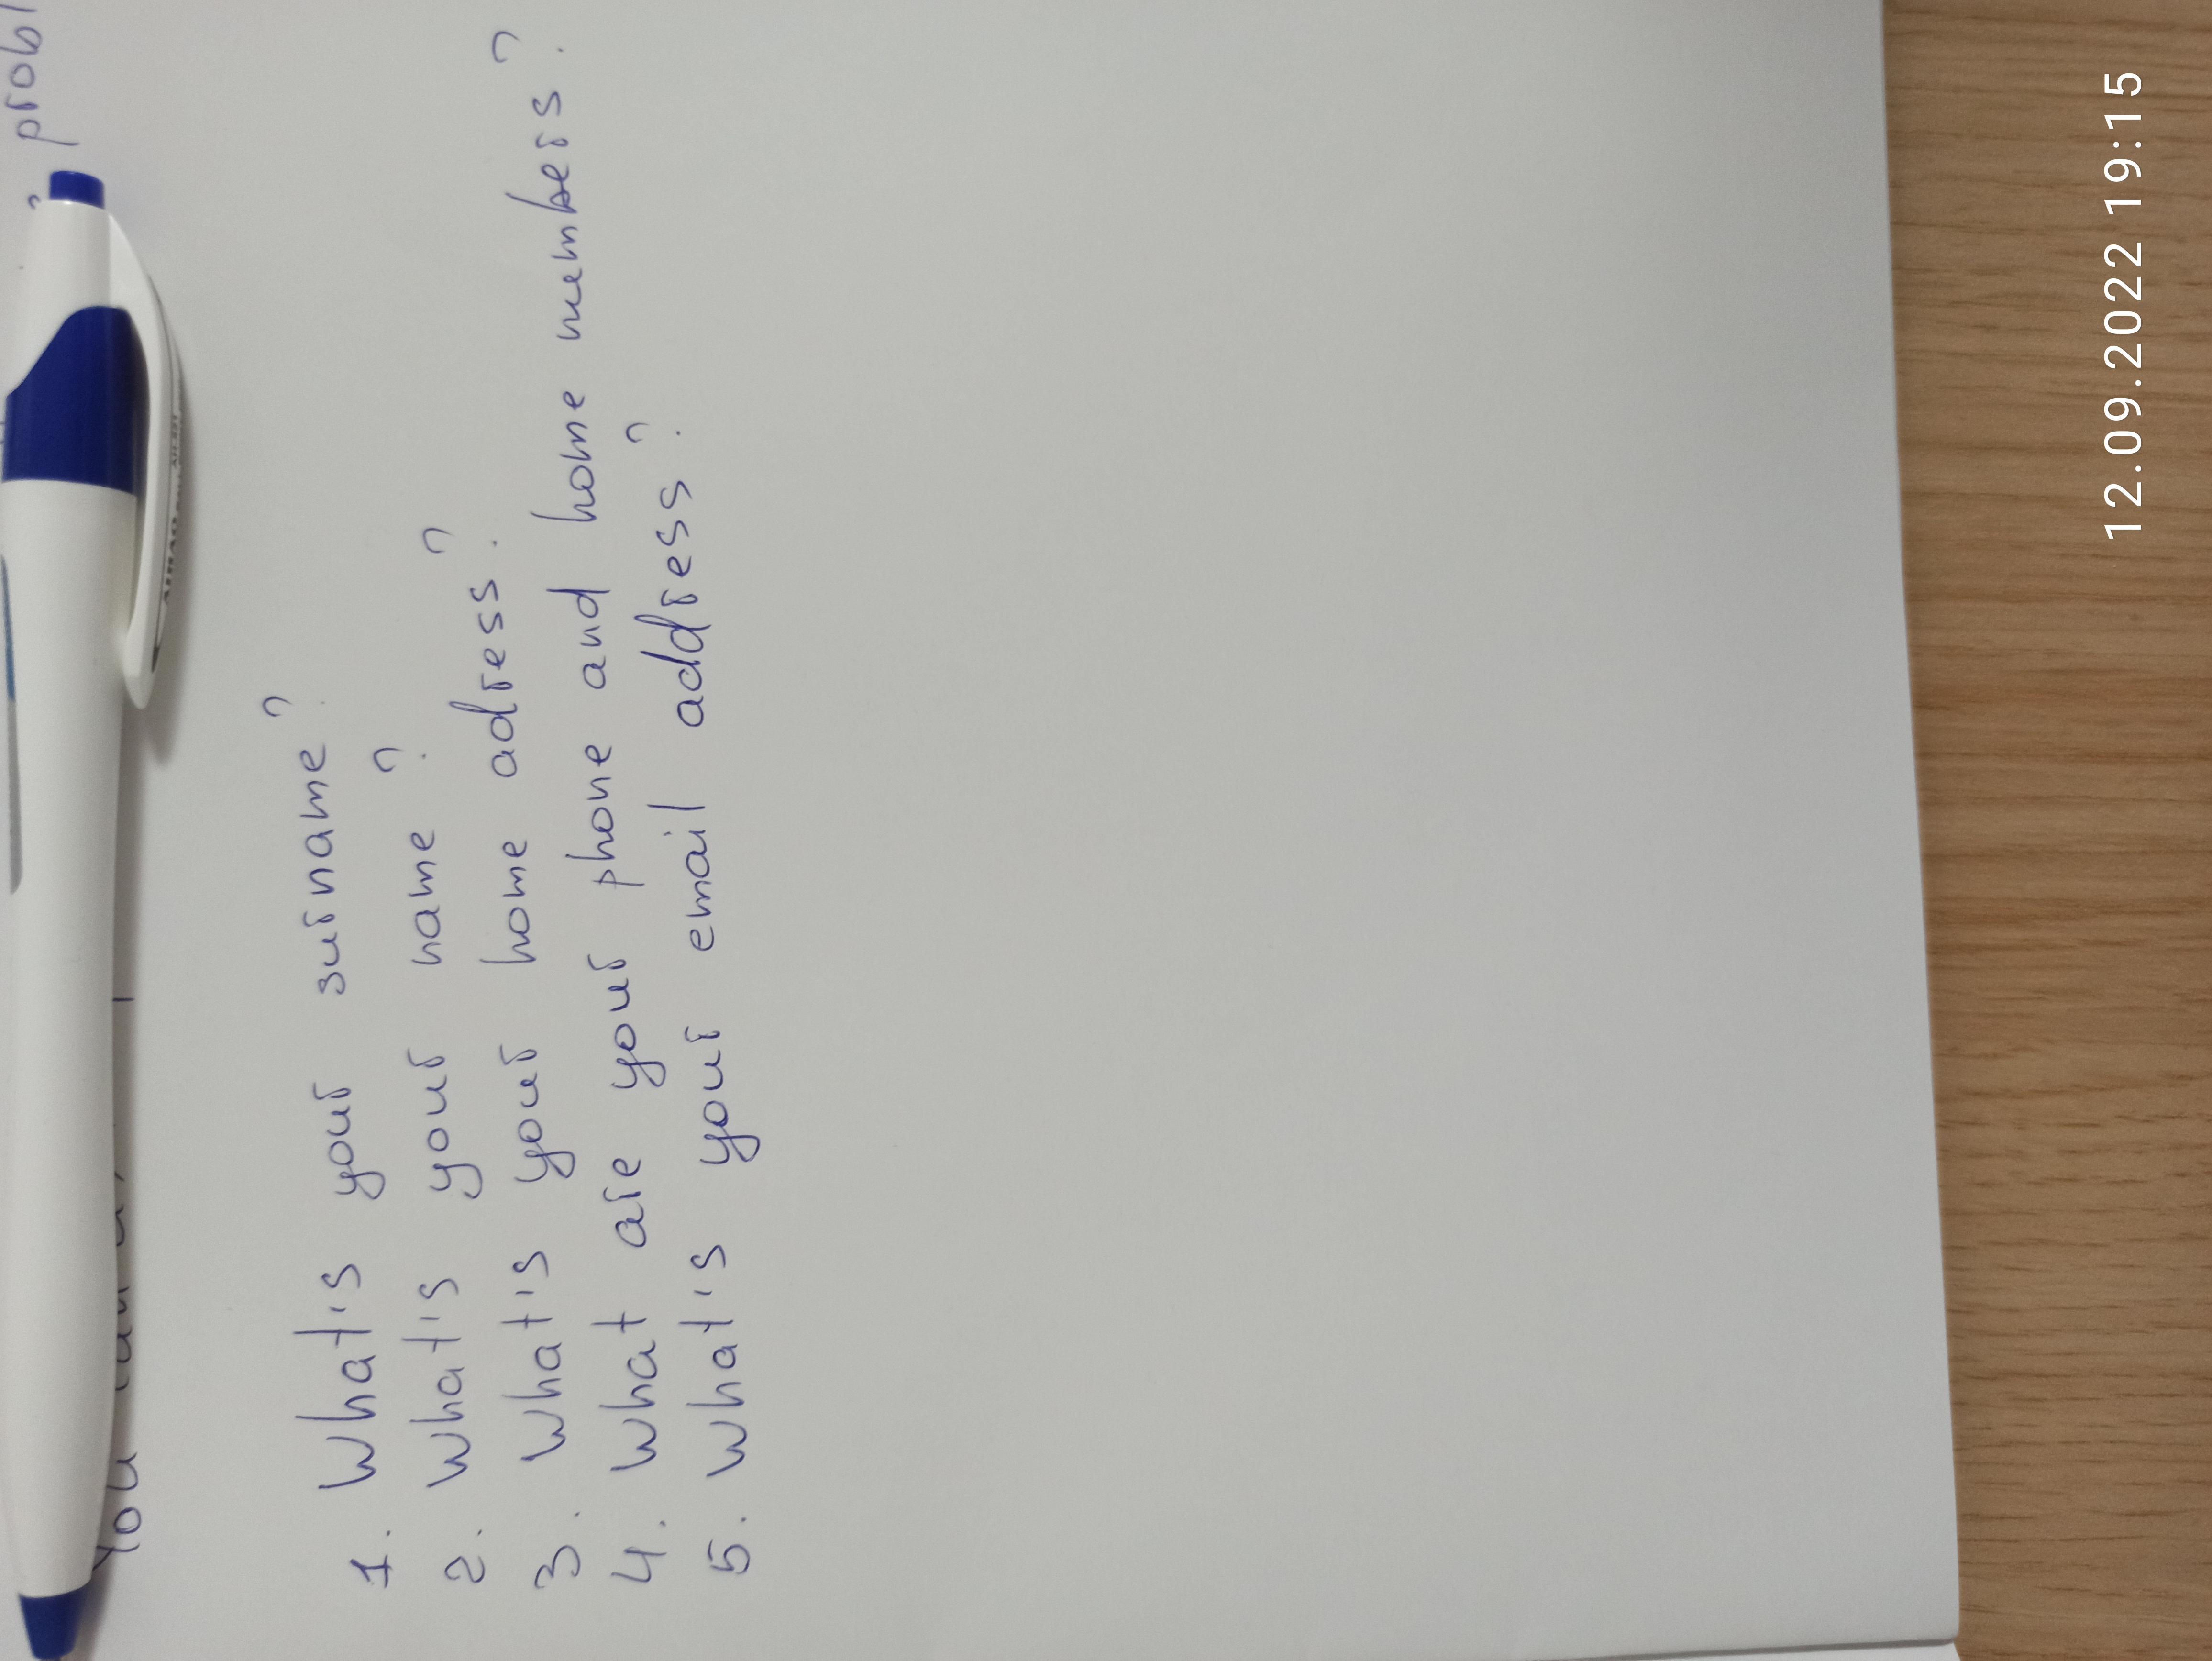 probl
You
1. What is your surname?
2. What is your name?
3. What is your home adress?
4. What are your phone and home numbers?
5. What is your email address?
12.09.2022 19:15